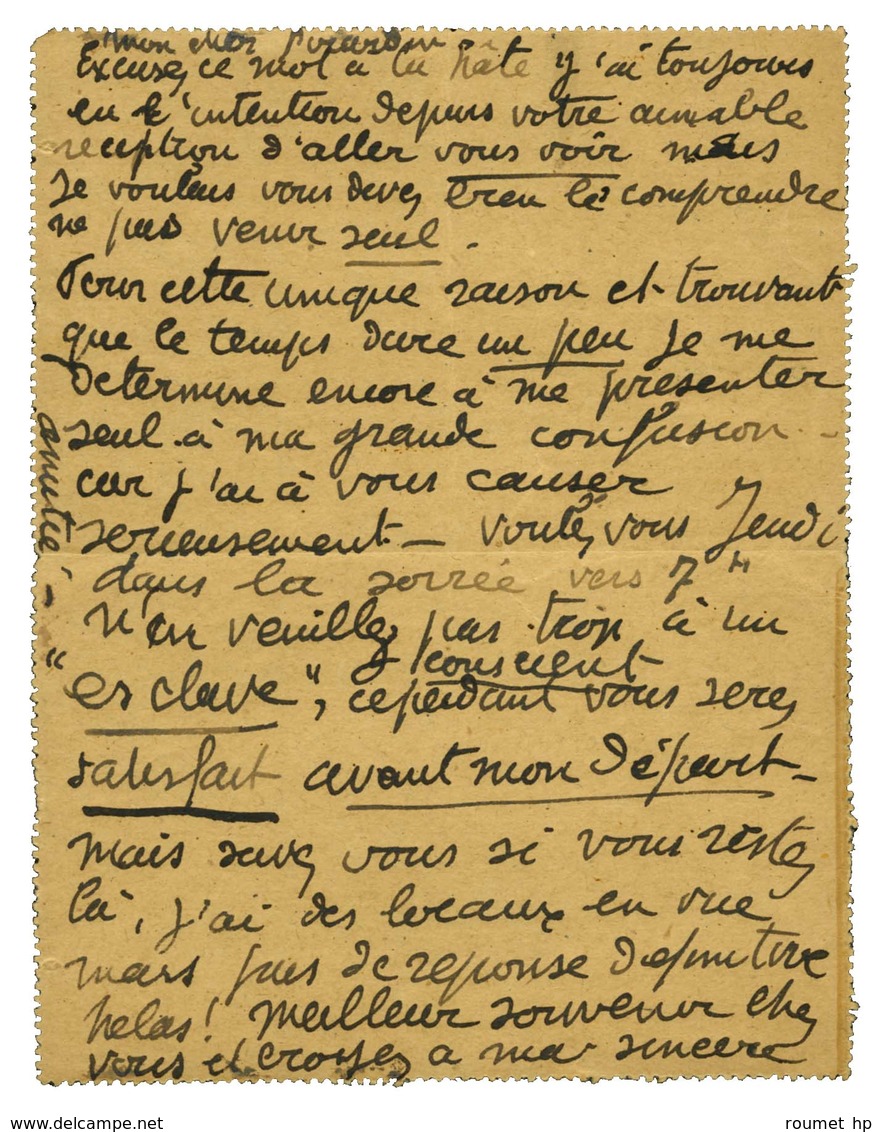 mon cher Girardin
Excusez ce mot à la hâte j'ai toujours
eu l'intention depuis votre aimable
reception d'aller vous voir mais
Je voulais vous devez bien le comprendre
ne pas venir seul.
Pour cette unique raison et trouvant
que le temps dure un peu Je me
Determine encore à me presenter
seul à ma grande confusion -
car j'ai à vous causer
serieusement - voulez vous Jeudi
dans la soirée vers 7 h
N'en veuillez pas trop à un
"esclave", conscient cependant vous serez
satisfait avant mon départ -
mais savez vous si vous restez
là, j'ai des locaux en vue
mais pas de reponse definitive
helas! Meilleur souvenir chez
vous et croyez a ma sincère
amitié -
roumet hp